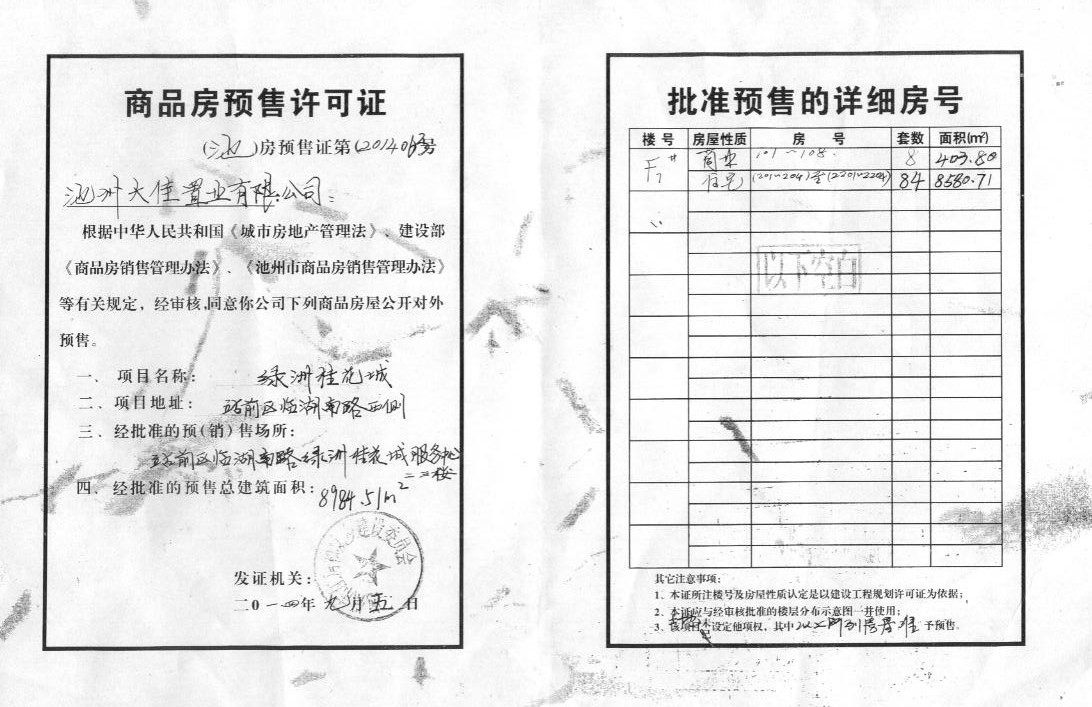 商品房预售许可证
(池)房预售证第(2014)号
池州天佳置业有限公司:
根据中华人民共和国《城市房地产管理法》、建设部
《商品房销售管理办法》、《池州市商品房销售管理办法》
等有关规定，经审核,同意你公司下列商品房屋公开对外
预售。
一、项目名称: 绿洲桂花城
二、项目地址: 站前区临湖南路西侧
三、经批准的预(销)售场所:
站前区临湖南路绿洲桂花城服务
四、经批准的预售总建筑面积: 8984.51m²
发证机关:
二0一四年九月五日
批准预售的详细房号
楼号 房屋性质 房号 套数 面积(㎡)
F7# 商业 101~108 8 403.80
住宅 (201~204)至(2201~2204) 84 8580.71
以下空白
其它注意事项:
1、本证所注楼号及房屋性质认定是以建设工程规划许可证为依据;
2、本证应与经审核批准的楼层分布示意图一并使用;
3、该项目未设定他项权，其中以上所列房屋准予预售。